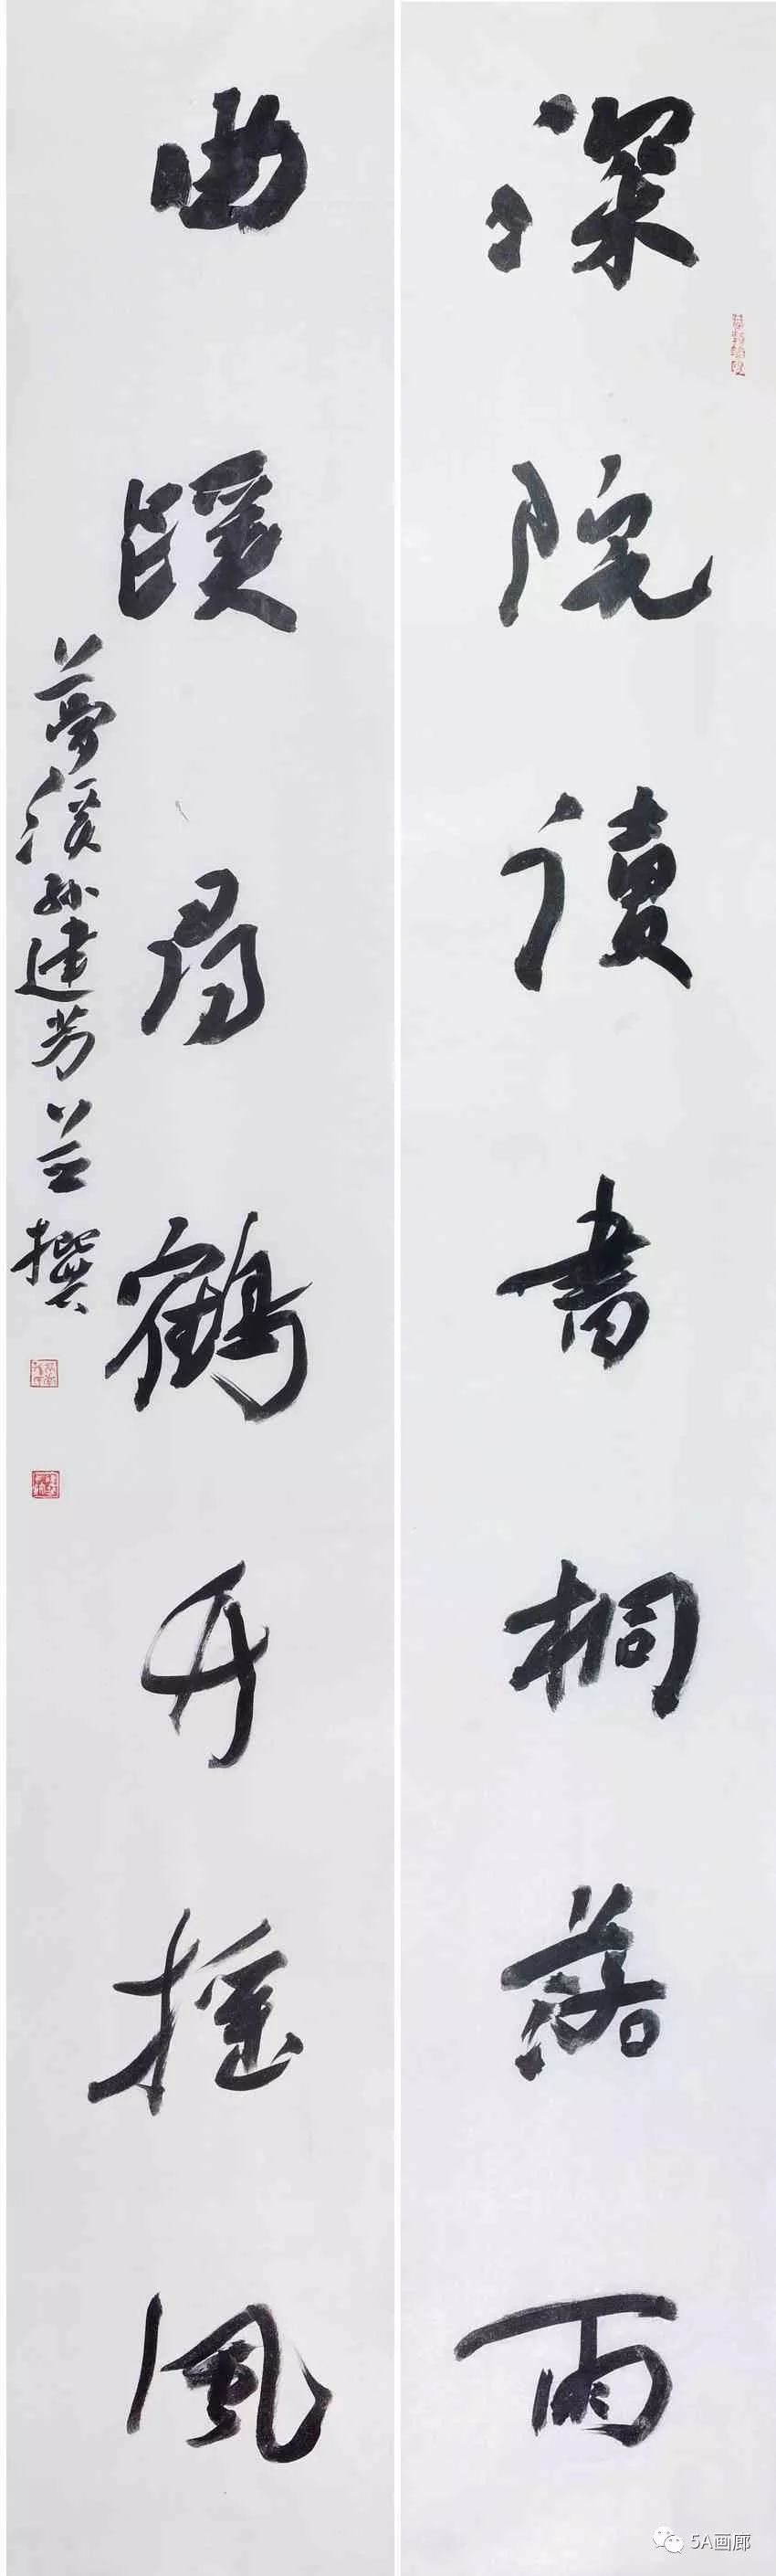 深院讀書桐落雨
曲蹊尋鶴竹搖風
夢溪孫建芳並撰
5A画廊